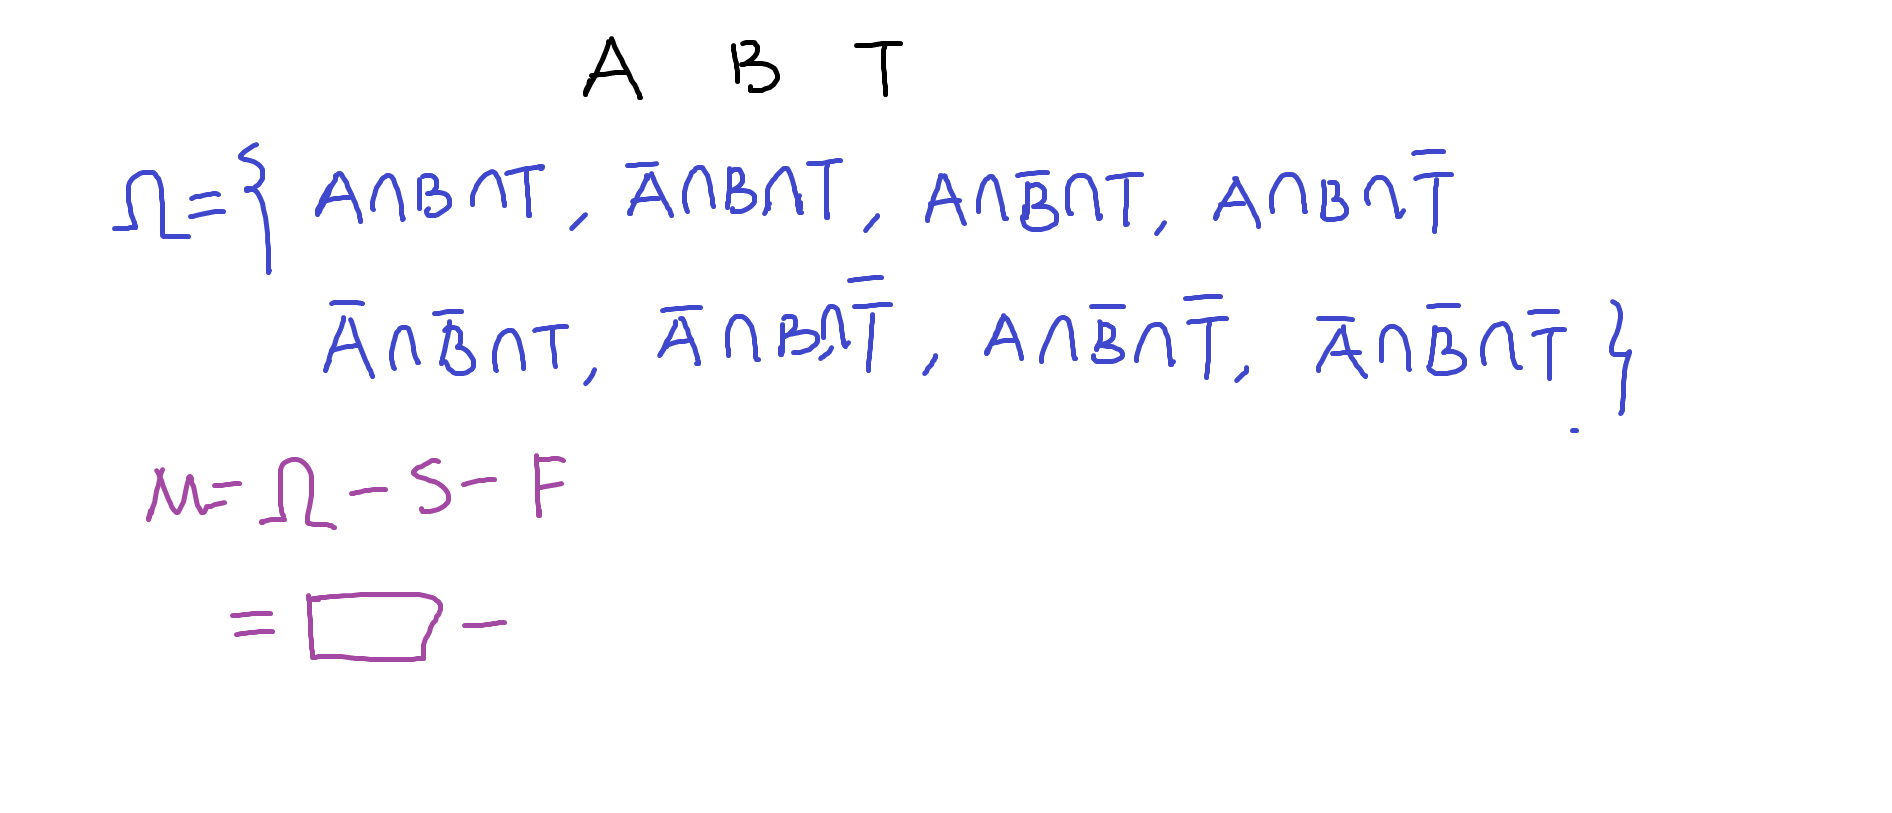 A B T
Ω = { A∩B∩T, A̅∩B∩T, A∩B̅∩T, A∩B∩T̅
A̅∩B̅∩T, A̅∩B∩T̅, A∩B̅∩T̅, A̅∩B̅∩T̅ }
M = Ω - S - F
= □ -